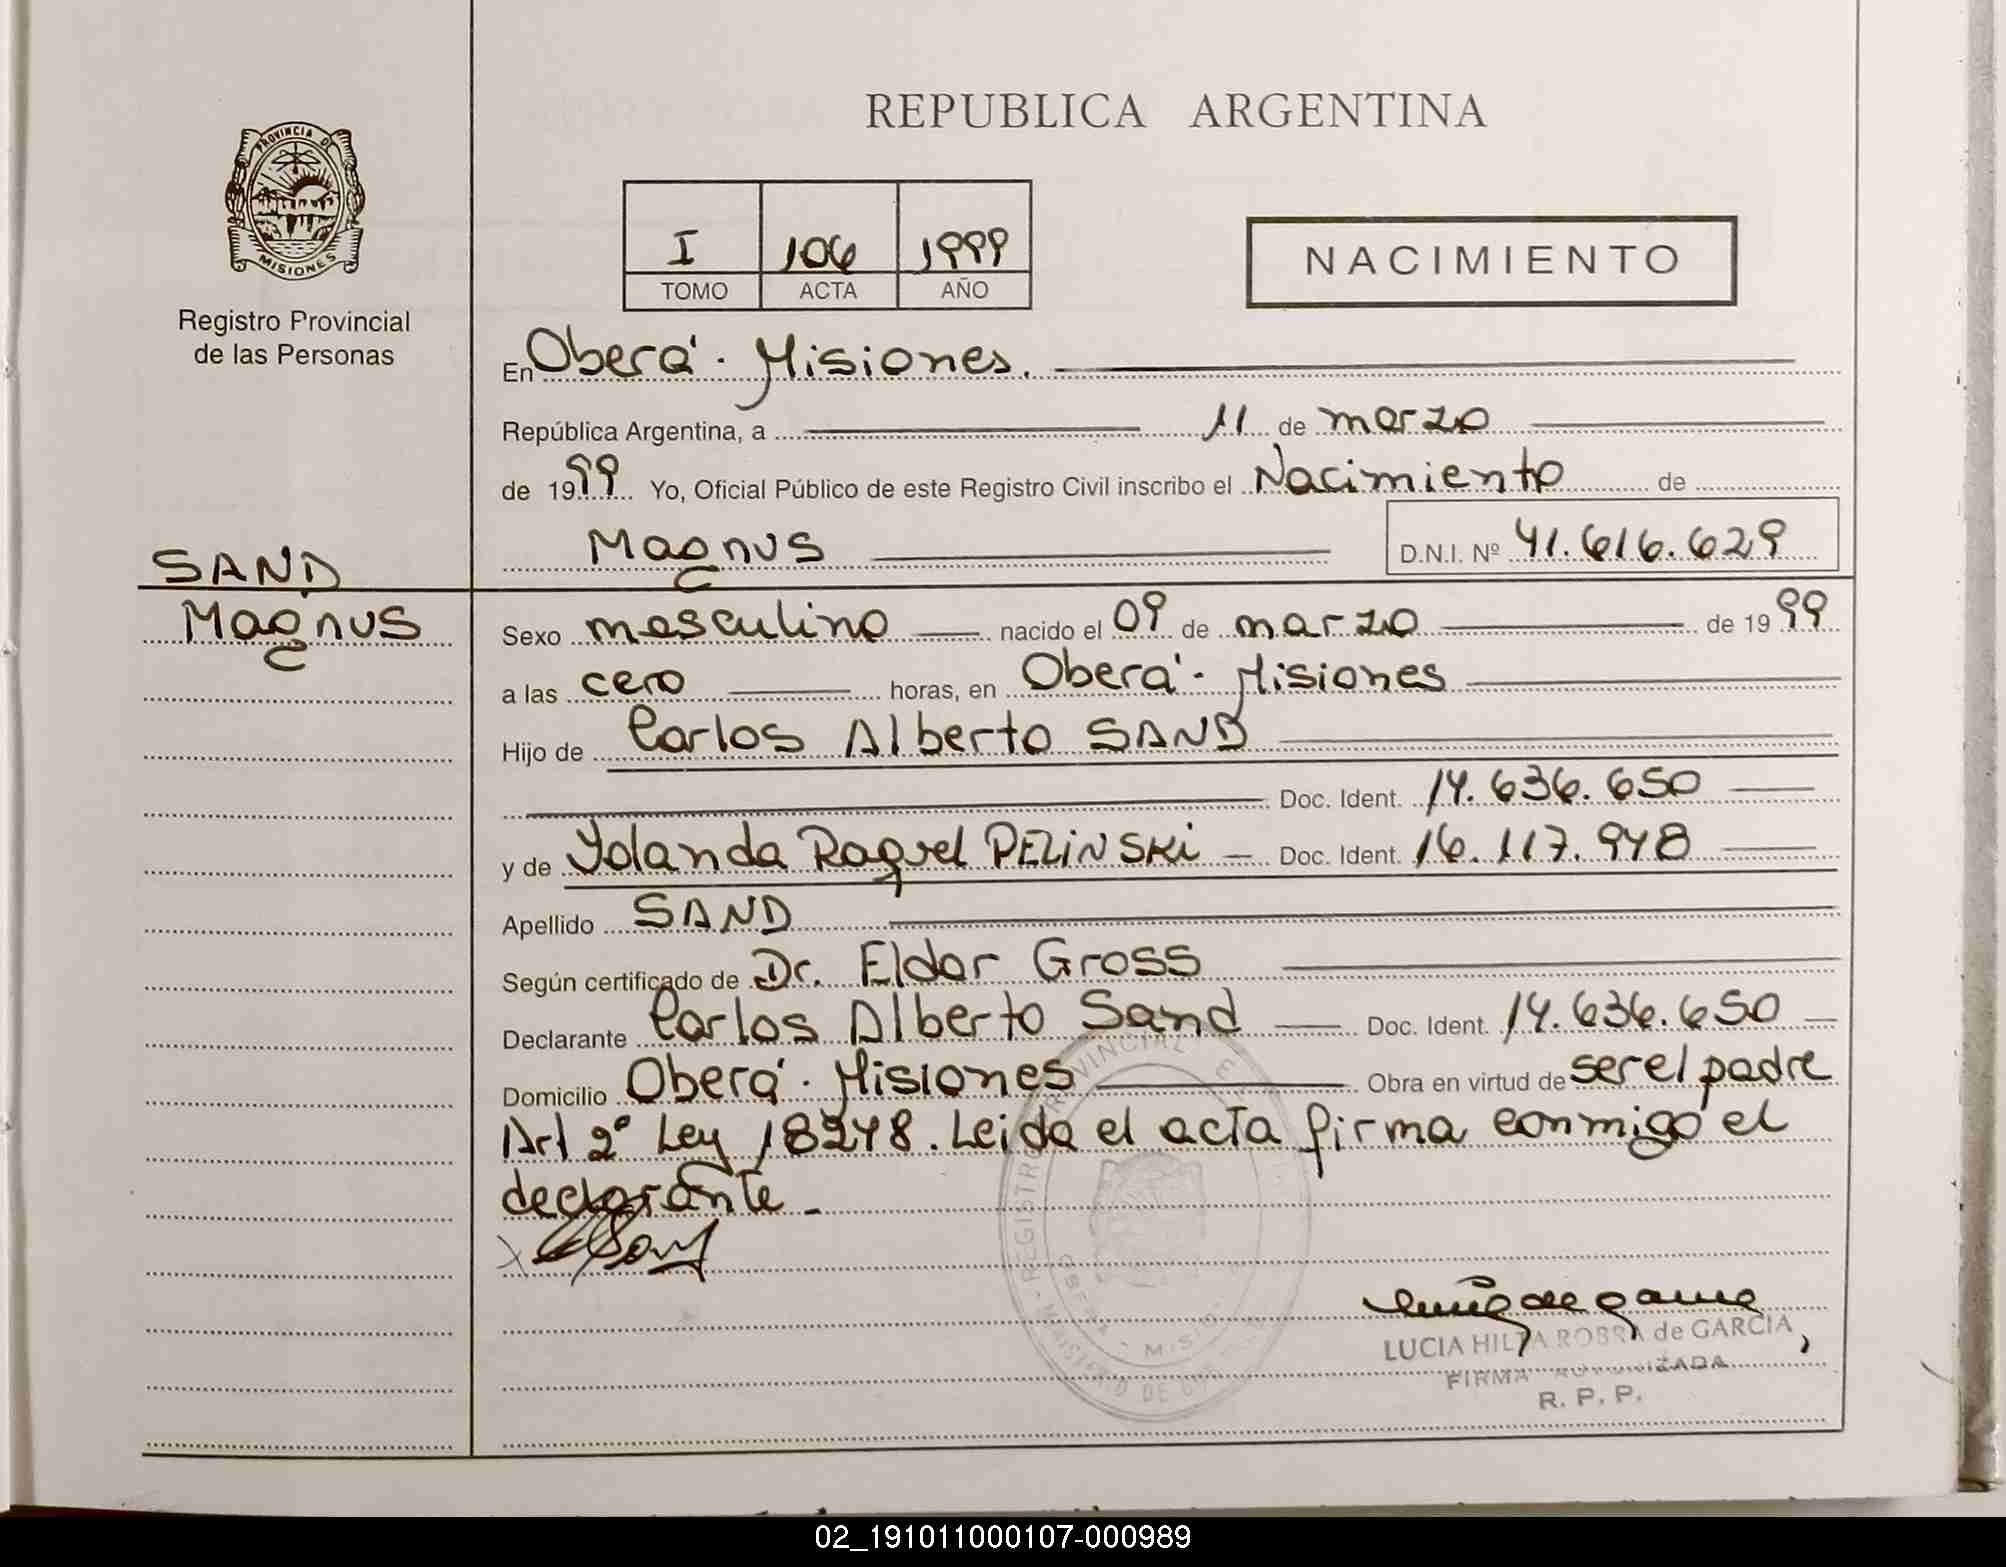 REPUBLICA ARGENTINA
PROVINCIA DE
MISIONES
Registro Provincial
de las Personas
I 106 1999
TOMO ACTA AÑO
NACIMIENTO
En Oberá - Misiones.
República Argentina, a 11 de marzo
de 1999 Yo, Oficial Público de este Registro Civil inscribo el Nacimiento de
Magnus D.N.I. Nº 41.616.629
SAND
Magnus
Sexo masculino nacido el 09 de marzo de 1999
a las cero horas, en Oberá - Misiones
Hijo de Carlos Alberto SAND
Doc. Ident. 14.636.650
y de Yolanda Raquel PEZINSKi Doc. Ident. 16.117.948
Apellido SAND
Según certificado de Dr. Eldor Gross
Declarante Carlos Alberto Sand Doc. Ident. 14.636.650
Domicilio Oberá - Misiones Obra en virtud de ser el padre
Art 2º Ley 18248. Leida el acta firma conmigo el
declarante -
LUCIA HILDA ROBRA de GARCIA
FIRMA AUTORIZADA
R. P. P.
02_191011000107-000989